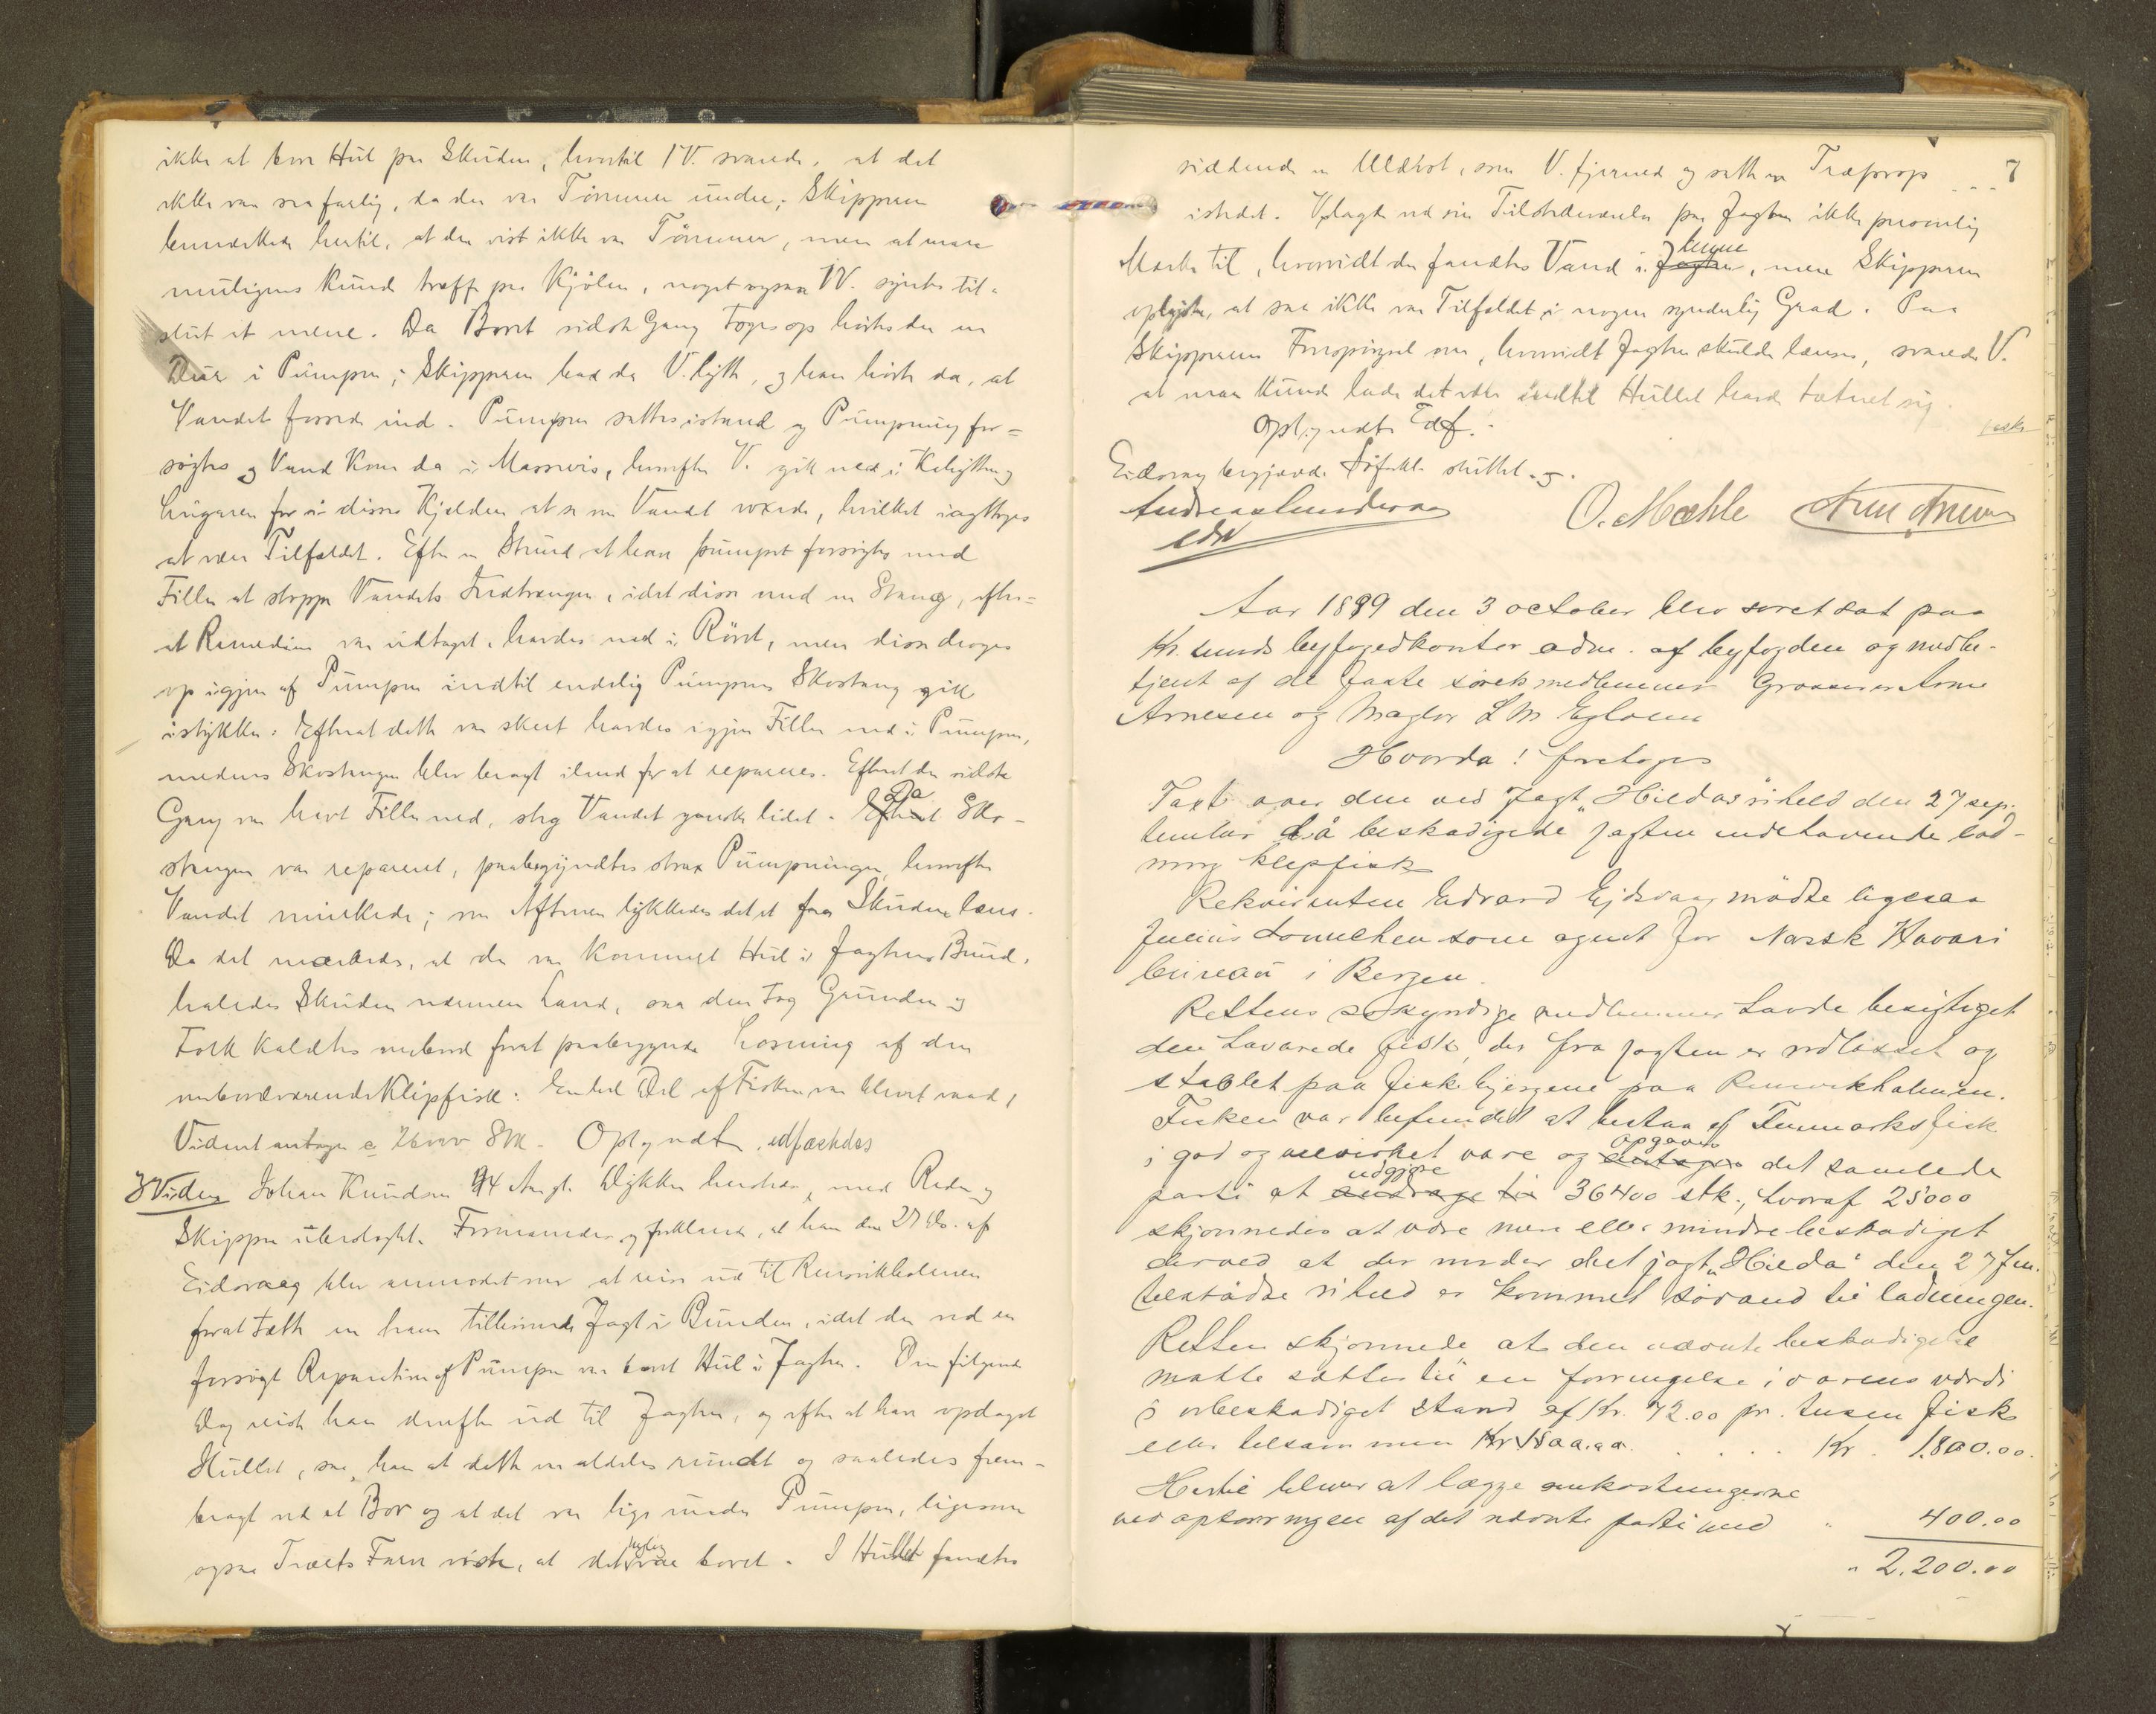 ikke at bore Hul paa Skuden, hvortil 1 V. svarede, at det
ikke var saa farlig, da der var Tømmer under; Skipperen
bemærkede hertil, at der vist ikke var Tømmer, men at man
muligens kunde træffe paa Kjølen, noget ogsaa 1V. syntes til-
slut at mene. Da Boret sidste Gang toges op hørtes der en
Dur i Pumpen; Skipperen bad da V. lytte, og han hørte da, at
Vandet fossede ind. Pumpen sattes istand og Pumpning for-
søgtes og Vand kom da i Massevis, hvorefter V. gik ned i Kahytten og
Lugaren for i disse Kjelden at se om Vandet voxede, hvilket iagttoges
at være Tilfældet. Efter en Stund at have pumpet forsøgtes med
Filler at stoppe Vandets Indtrængen, idet disse med en Stang, efter-
at var udtaget, havdes ned i Røret, men disse droges
op igjen af Pumpen indtil endelig Pumpens Skostang gik
istykker. Efterat dette var skeet havdes igjen Filler ned i Pumpen,
medens Skostangen blev bragt iland for at repareres. Efterat der sidste
Gang var havt Filler ned, steg Vandet ganske lidet. Efterat Da Sko-
stangen var repareret, paabegyndtes strax Pumpningen, hvorefter
Vandet minkede; om Aftenen lykkedes det at faa Skuden læns.
Da det mærkedes, at der var kommet Hul i Jagtens Bund,
haledes Skuden nærmere Land, saa den tog Grunden og
Folk kaldtes ombord forat paabegynde Losning af den
ombordværende Klipfisk. En hel Del af Fisken var blevet vaad,
Vidnet antager c 26000 Stk. Oplyndt, edfæstedes
3 Vidne Johan Knudsen 44 Aar gl. Dykker herstæds, med Reder og
Skipper ubeslægtet. Formanedes og forklarede, at han den 27 ds. af
Eidsvaag blev anmodet om at reise ud til Rensvikholmen
forat tætte en ham tilhørende Jagt i Bunden, idet der ved en
forsøgt Reparation af Pumpen var boret Hul i Jagten. Den følgende
Dag reiste han derefter ud til Jagten, og efter at have opdaget
Hullet, saa han at dette var aldeles rundt og saaledes frem-
bragt ved et Bor og at det var lige under Pumpen, ligesom
ogsaa Træets Farve viste, at det nylig var boret. I Hullet fandtes
7
siddende en Uldtot, som V. fjernede og satte en Træprop
istedet. V lagde ved sin Tilstedeværelse paa Jagten ikke personlig
Mærke til, hvorvidt der fandtes Vand i Jagten denne, men Skipperen
oplyste, at saa ikke var Tilfældet i nogen synderlig Grad. Paa
Skipperens Forespørgsel om, hvorvidt Jagten skulde lænses, svarede V.
at man kunde lade det være indtil Hullet havde tætnet sig
Oplyndt Edf.
Eidsvaag begjærede Søforkl. sluttet.
Andreas Gundersen
edv
O. Mæhle Arne Arnesen
Aar 1899 den 3 october blev søret sat paa
Kr.sunds byfogedkontor adm. af byfogden og medbe-
tjent af de faste søretsmedlemmer Grosserer Arne
Arnesen og Mægler L M
Hvorda! foretoges
Taxt over den ved Jagt „Hildas uheld den 27 sep-
tember d.å beskadigede jagten indehavende lad-
ning klepfisk
Rekvirenten Edvard Ejdsvaag mødte ligesaa
Julius som agent for Norsk Havari
bureaü i Bergen.
Rettens søkyndige medlemmer havde besigtiget
den havarede fisk, der fra jagten er udlosset og
stablet paa fiskebjergene paa Rensvikholmen.
Fisken var befundet at bestaa af Finmarksfisk
i god og velvirket vare og antages opgaves det samlede
parti at andrage til udgjøre 36400 stk., hvoraf 25000
skjønnedes at være mere eller mindre beskadiget
derved at der under det jagt „Hilda" den 27 f.m.
tilstødte uheld er kommet søvand til ladningen.
Retten skjønnede at den nævnte beskadigelse
maatte sættes til en forringelse i varens værdi
i ubeskadiget stand af Kr. 72.00 pr. tusen fisk
eller tilsammen Kr 1800.00. . . . . Kr. 1.800.00.
Hertil bliver at lægge omkostningerne
ved optørringen af det nævnte parti med " 400.00
" 2.200.00